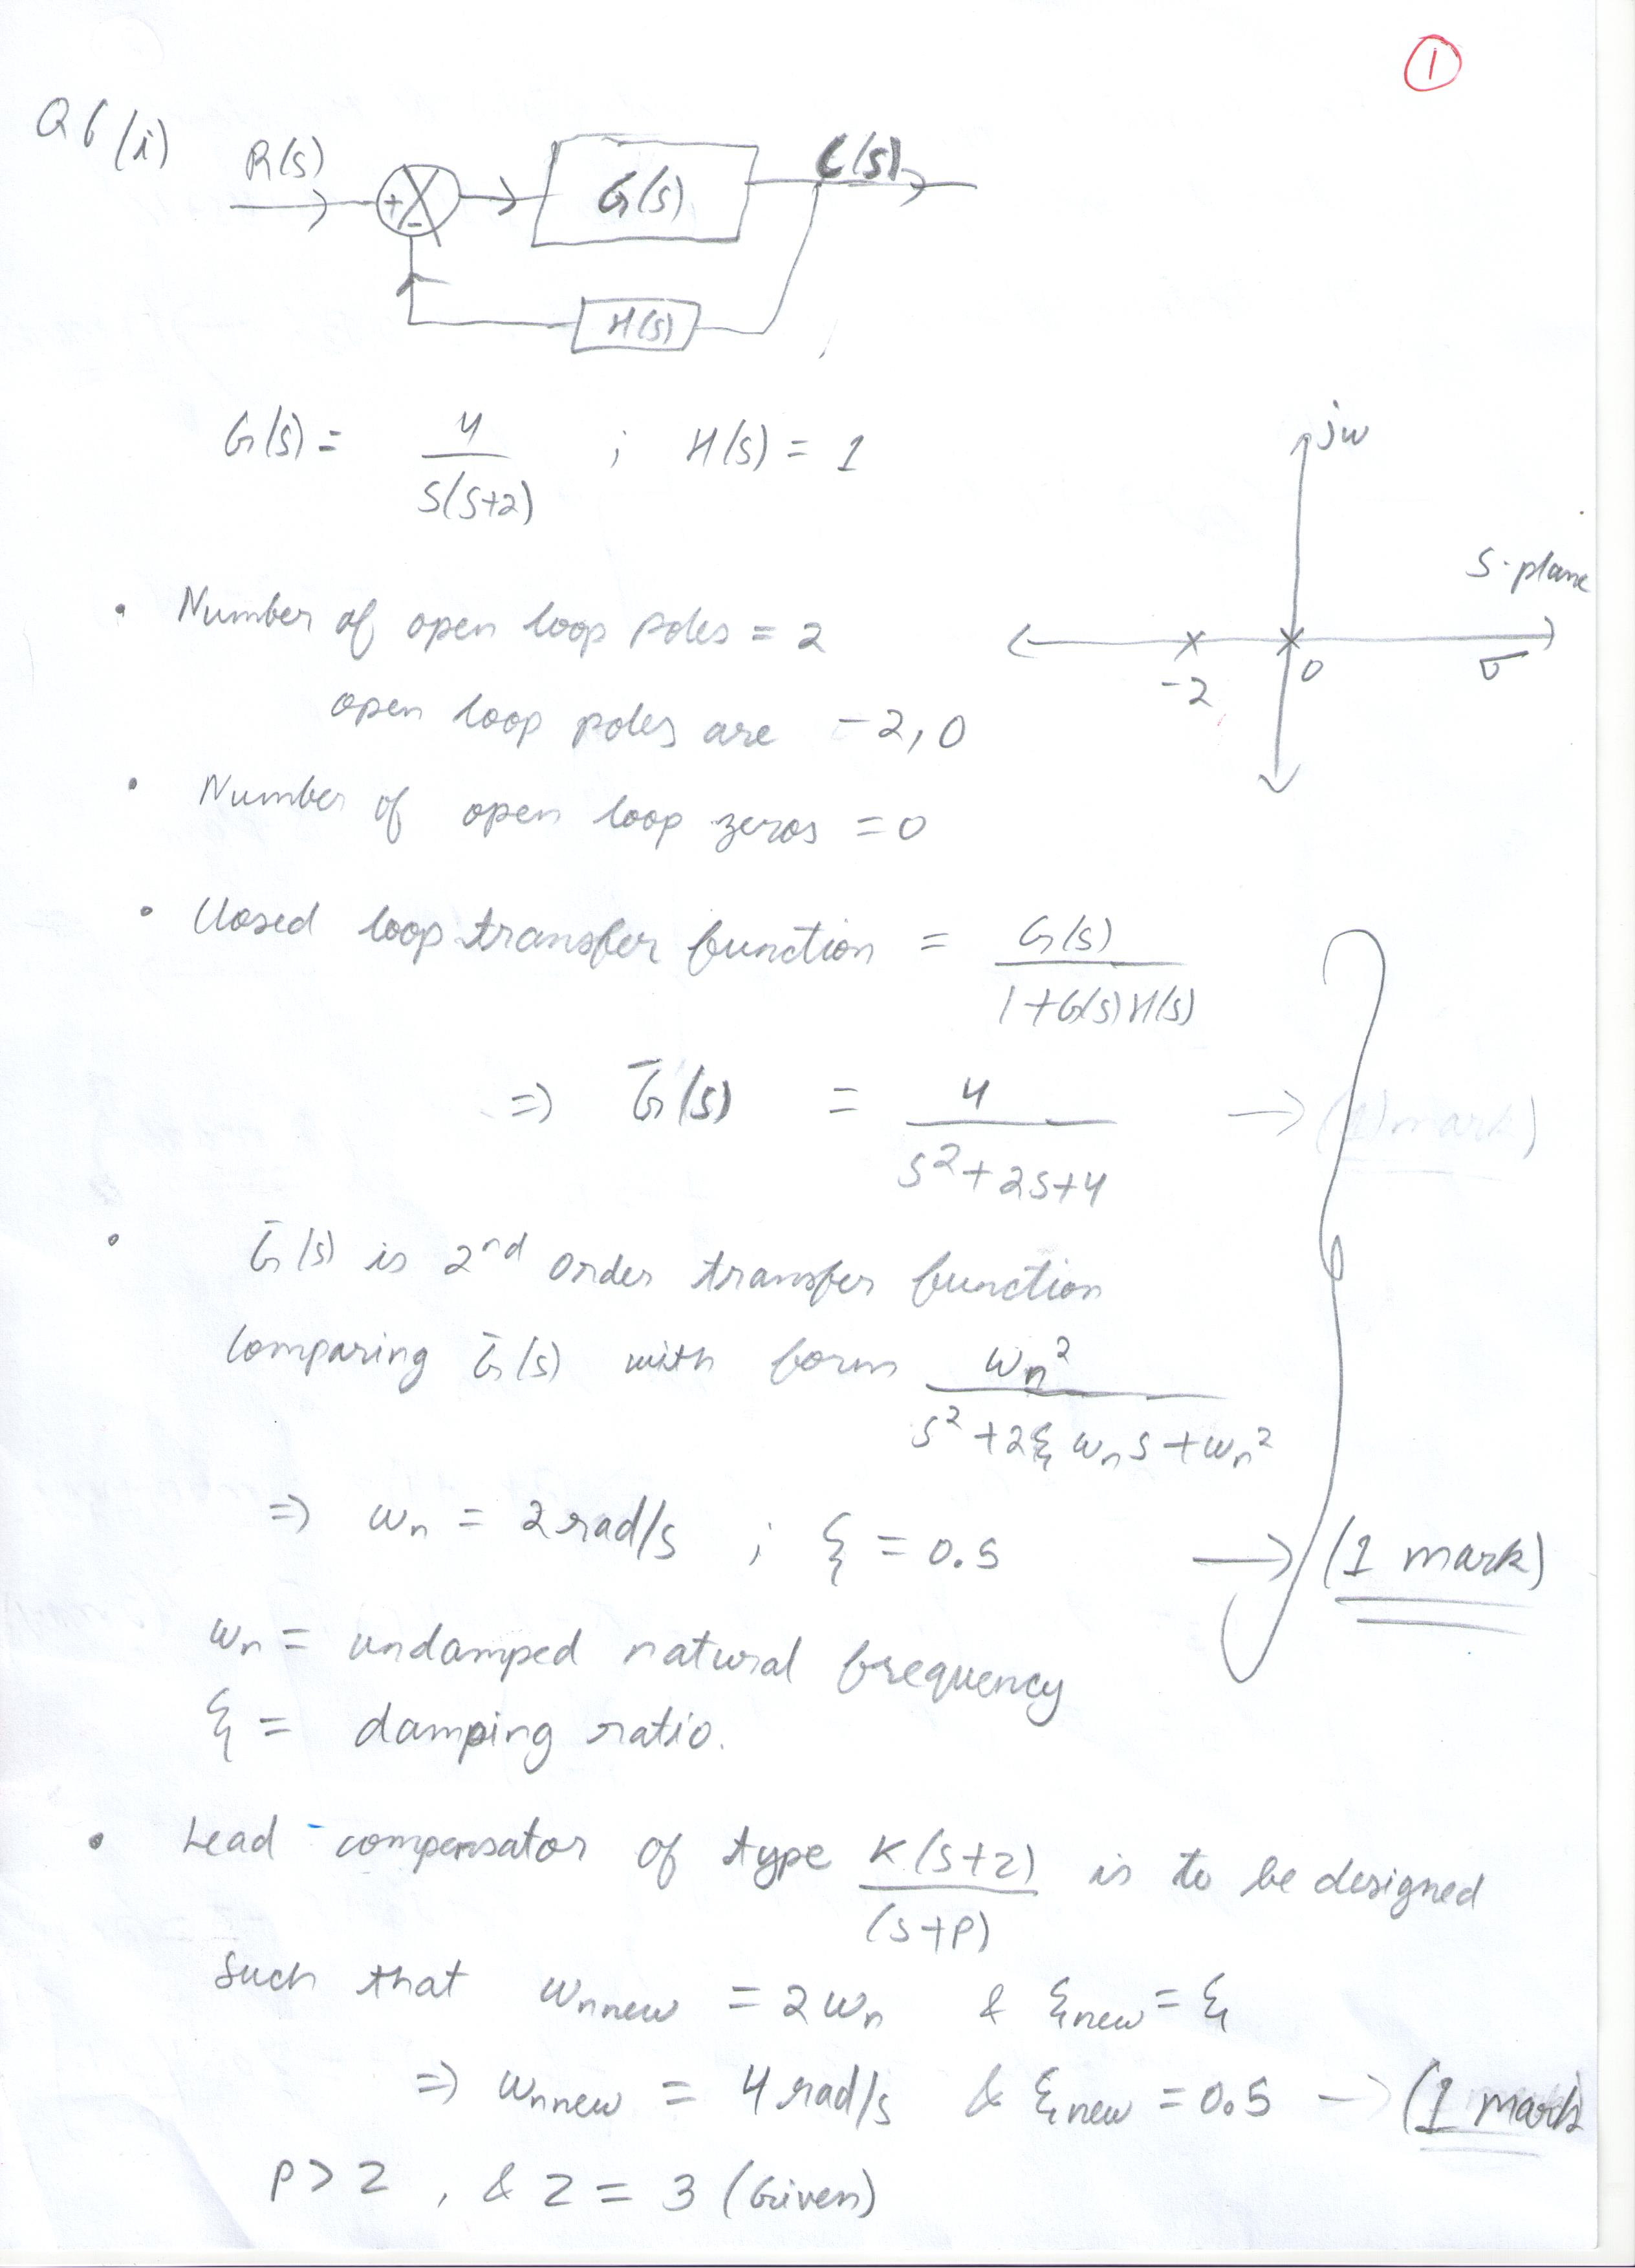 1
Q6 (i)
R(s)
+
-
G(s)
C(s)
H(s)
G(s) = 4 / s(s+2) ; H(s) = 1
jω
S-plane
-2
0
σ
• Number of open loop poles = 2
open loop poles are -2, 0
• Number of open loop zeros = 0
• Closed loop transfer function = G(s) / 1+G(s)H(s)
=> G̅(s) = 4 / s²+2s+4 → (1 mark)
• G̅(s) is 2nd order transfer function
Comparing G̅(s) with form ωn² / s²+2ξωns+ωn²
=> ωn = 2 rad/s ; ξ = 0.5 → (1 mark)
ωn = undamped natural frequency
ξ = damping ratio.
• Lead-compensator of type K(s+z) / (s+p) is to be designed
Such that ωnnew = 2ωn & ξnew = ξ
=> ωnnew = 4 rad/s & ξnew = 0.5 → (1 mark)
p > z , & z = 3 (Given)